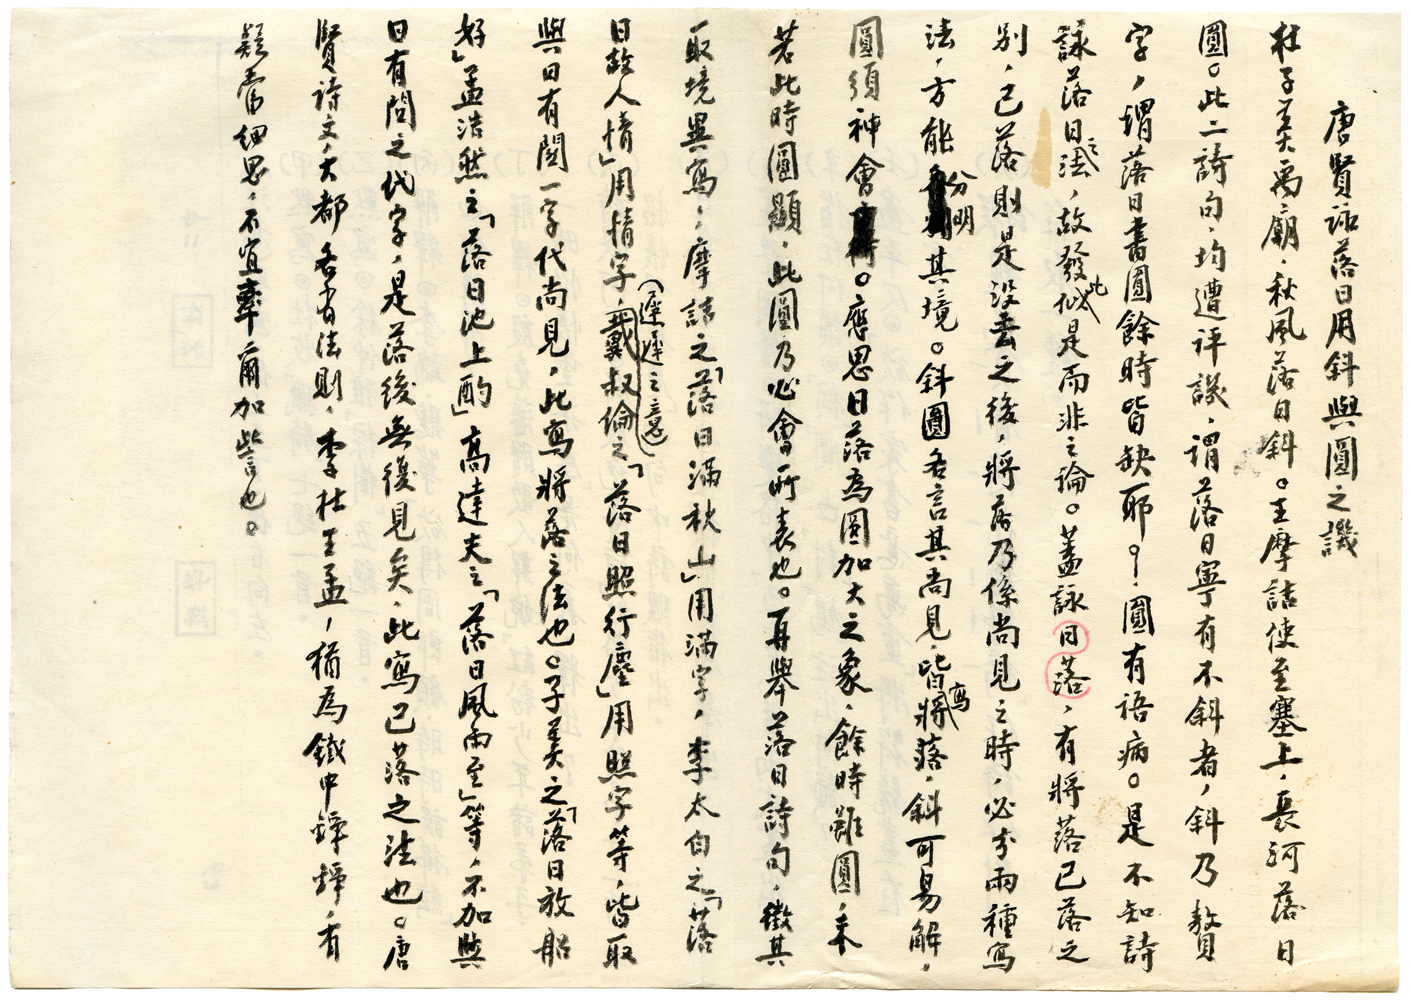 唐賢詠落日用斜與圓之譏
杜子美禹廟,秋風落日斜。王摩詰使至塞上,長河落日
圓。此二詩句,均遭評議,謂落日寧有不斜者,斜乃贅
字,謂落日書圓餘時皆缺耶?圓有語病。是不知詩
詠落日之法,故發此似是而非之論。蓋詠日落,有將落已落之
別,已落則是沒去之後,將落乃係尚見之時,必分兩種寫
法,方能分明其境。斜圓各言其尚見,皆寫將落,斜可易解,
圓須神會。應思日落為圓加大之象,餘時雖圓,未
若此時圓顯,此圓乃必會所表也。再舉落日詩句,徵其
取境異寫,摩詰之「落日滿秋山」用滿字,李太白之「落
日故人情」用情字,(遲遲之意)戴叔倫之「落日照行塵」用照字等,皆取
與日有關一字代尚見,此寫將落之法也。子美之「落日放船
好」孟浩然之「落日池上酌」高達夫之「落日風雨至」等,不加與
日有關之代字,是落後無復見矣,此寫已落之法也。唐
賢詩文,大都各有法則,李杜王孟,猶為鐵中錚錚,有
疑當細思,不宜率爾加訾也。